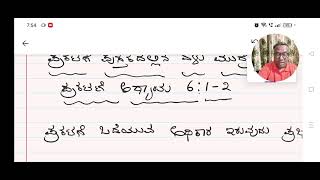 7:54
ಪ್ರಕಟಣೆ ಪುಸ್ತಕದಲ್ಲಿನ ಏಳು ಮುದ್ರ
ಪ್ರಕಟಣೆ ಅಧ್ಯಾಯ 6:1-2
ಪ್ರಕಟಣೆ ಒಡೆಯುವ ಅಧಿಕಾರ ಇರುವುದು